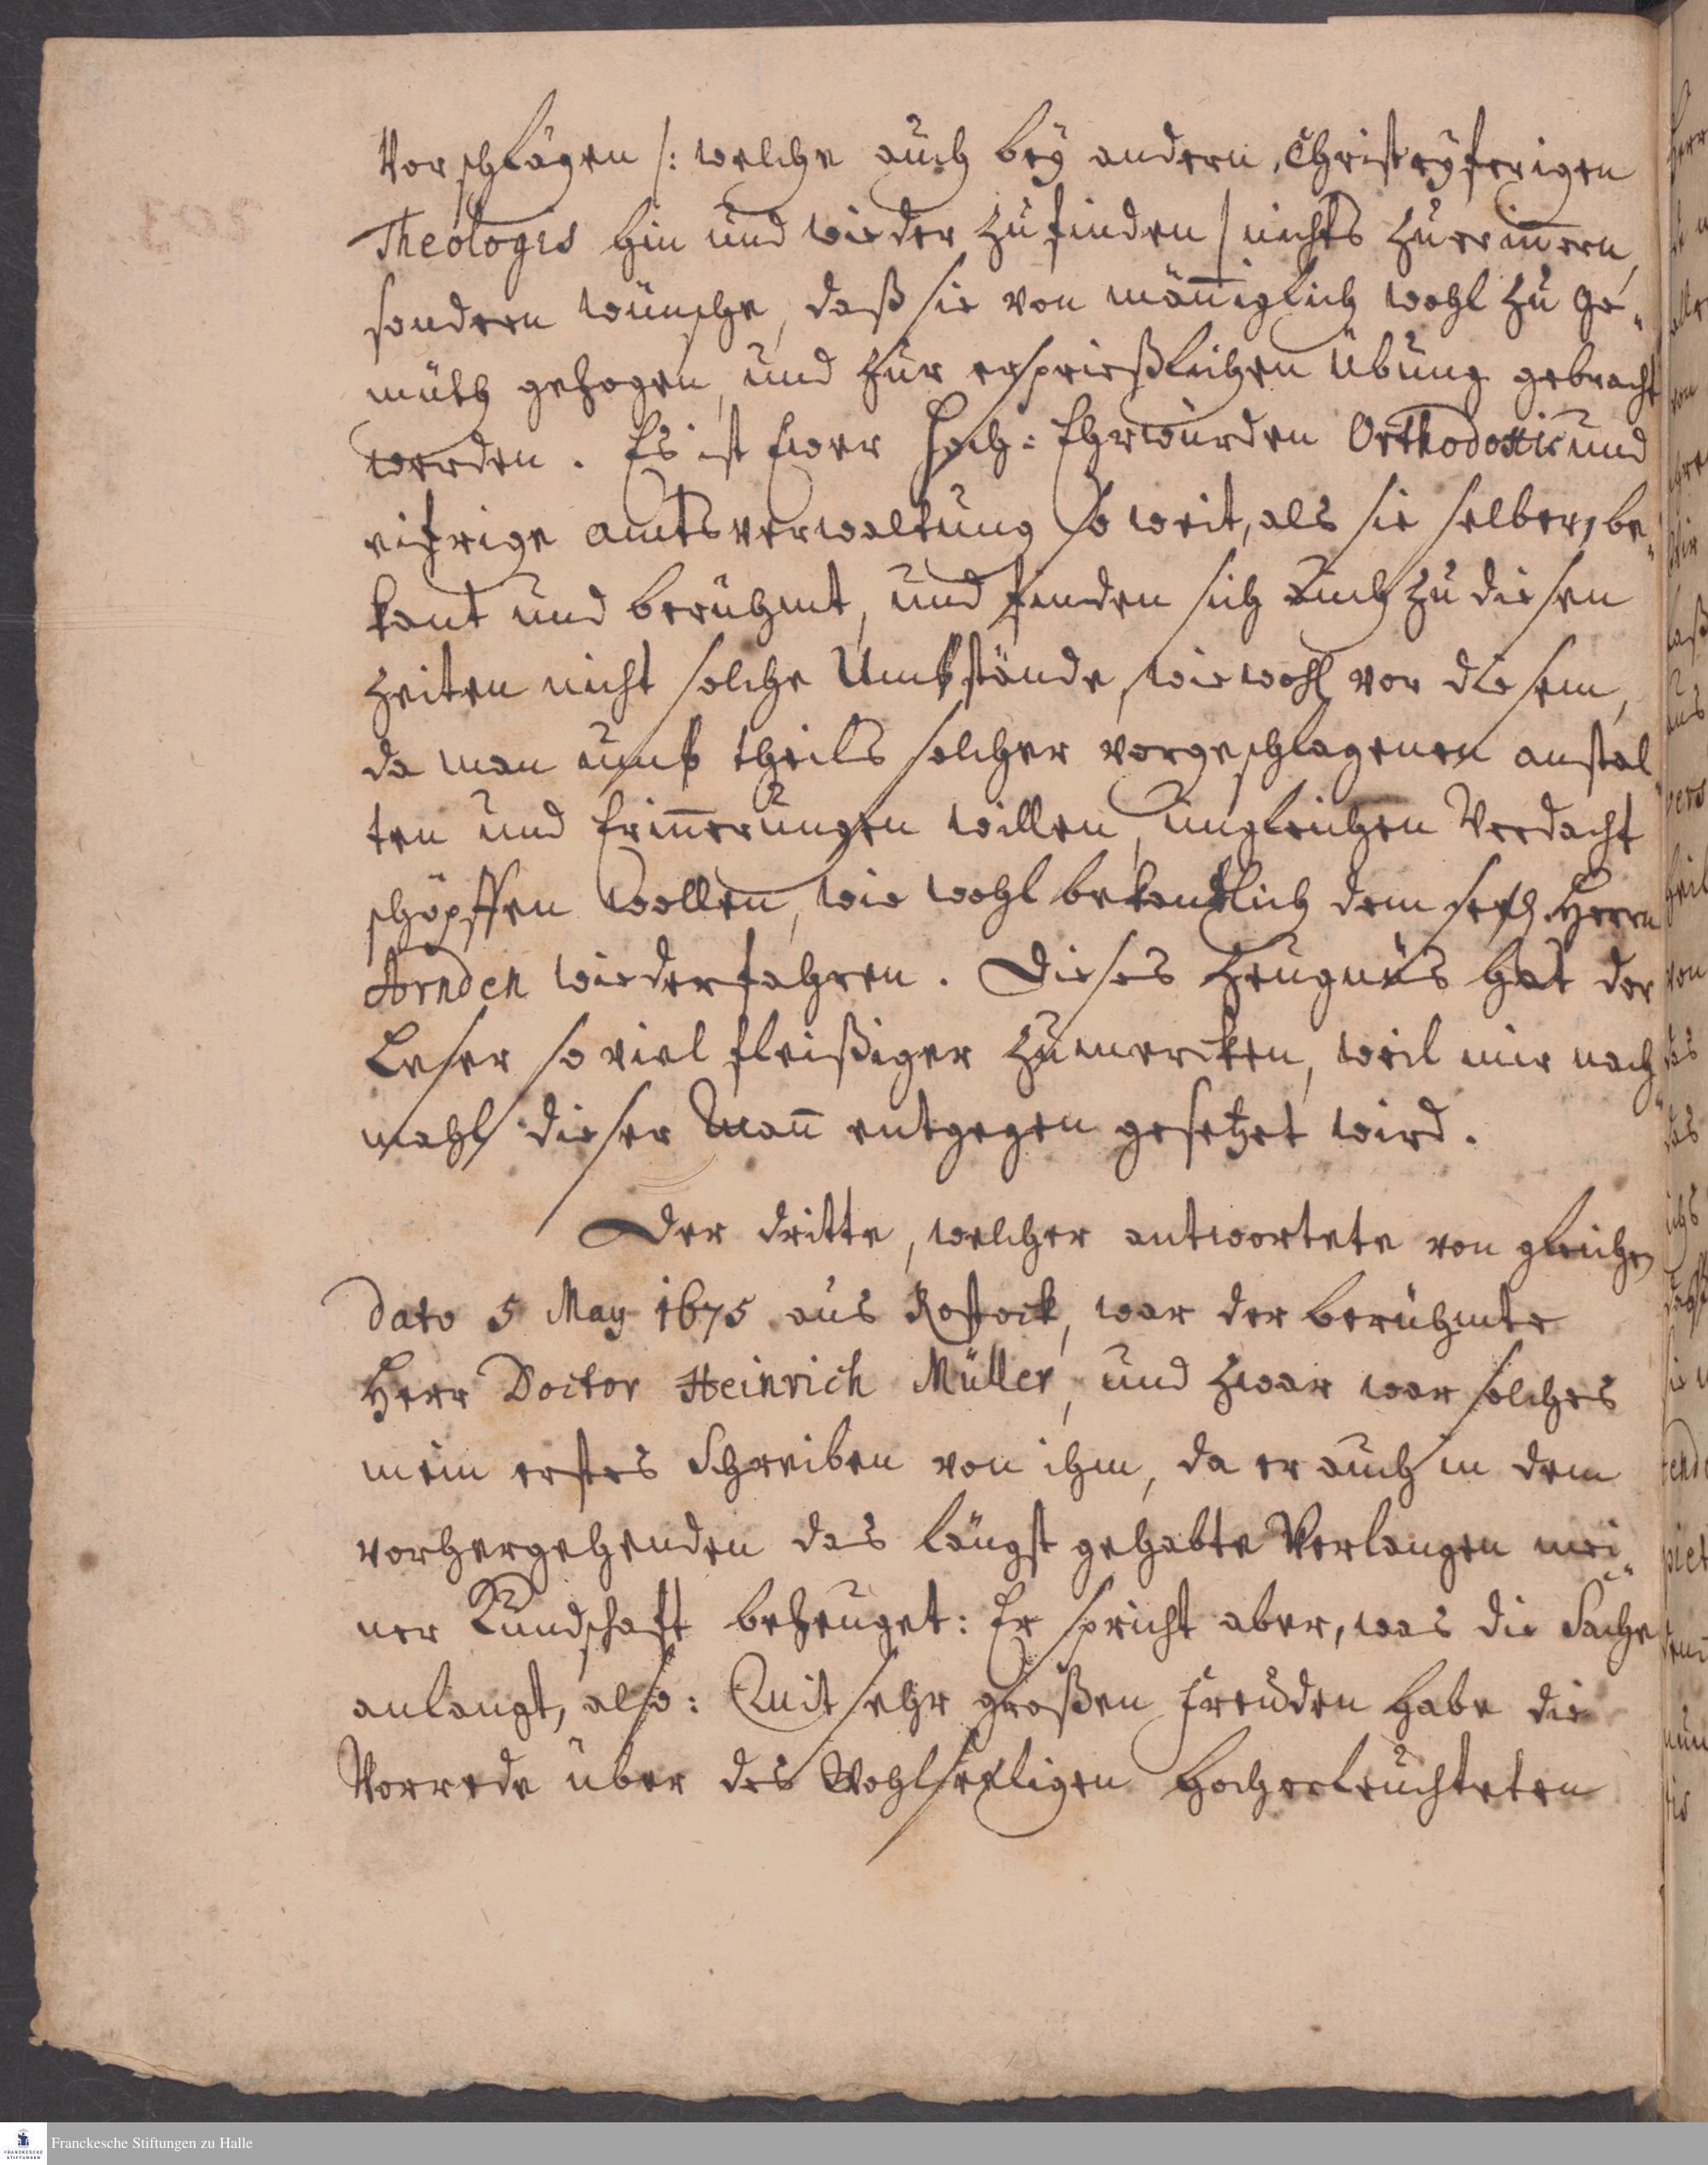 Vorschlägen /: welche auch bey andern Christeyferigen
Theologis hin und wieder zufinden / nichts zuerin̄ern,
sondern wünsche, daß sie von män̄iglich wohl zu Ge„
müth gezogen, und zur ersprießlichen Übung gebracht
werden. Es ist Ewer Hoch: Ehrwürden Orthodoxie und
eifrige Amtsverwaltung so weit, als sie selber, be„
kant und berühmt, und finden sich auch zu diesen
Zeiten nicht solche Umbstände, wie wohl vor diesem,
da man umb theils solcher vorgeschlagenen anstal„
ten und Erin̄erungen willen, ungleichen Verdacht
schöpffen wollen, wie wohl bekantlich dem seel. Herrn
Arnden wiederfahren. Dieses Zeugnüs hat der
Leser so viel fleißiger zumercken, weil mir nach„
mahls dieser Man̄ entgegen gesetzet wird.
Der dritte, welcher antwortete von gleichen
dato 5 May 1675 aus Rostock, war der berühmte
Herr Doctor Heinrich Müller, und zwar war solches
mein erstes Schreiben von ihm, da er auch in dem
vorhergehenden das längst gehabte Verlangen mei„
ner Kundschafft bezeuget: Er spricht aber, was die Sache
anlangt, also: Mit sehr großen Freuden habe die
Vorrede über des Wohlseeligen Hocherleuchteten
Franckesche Stiftungen zu Halle